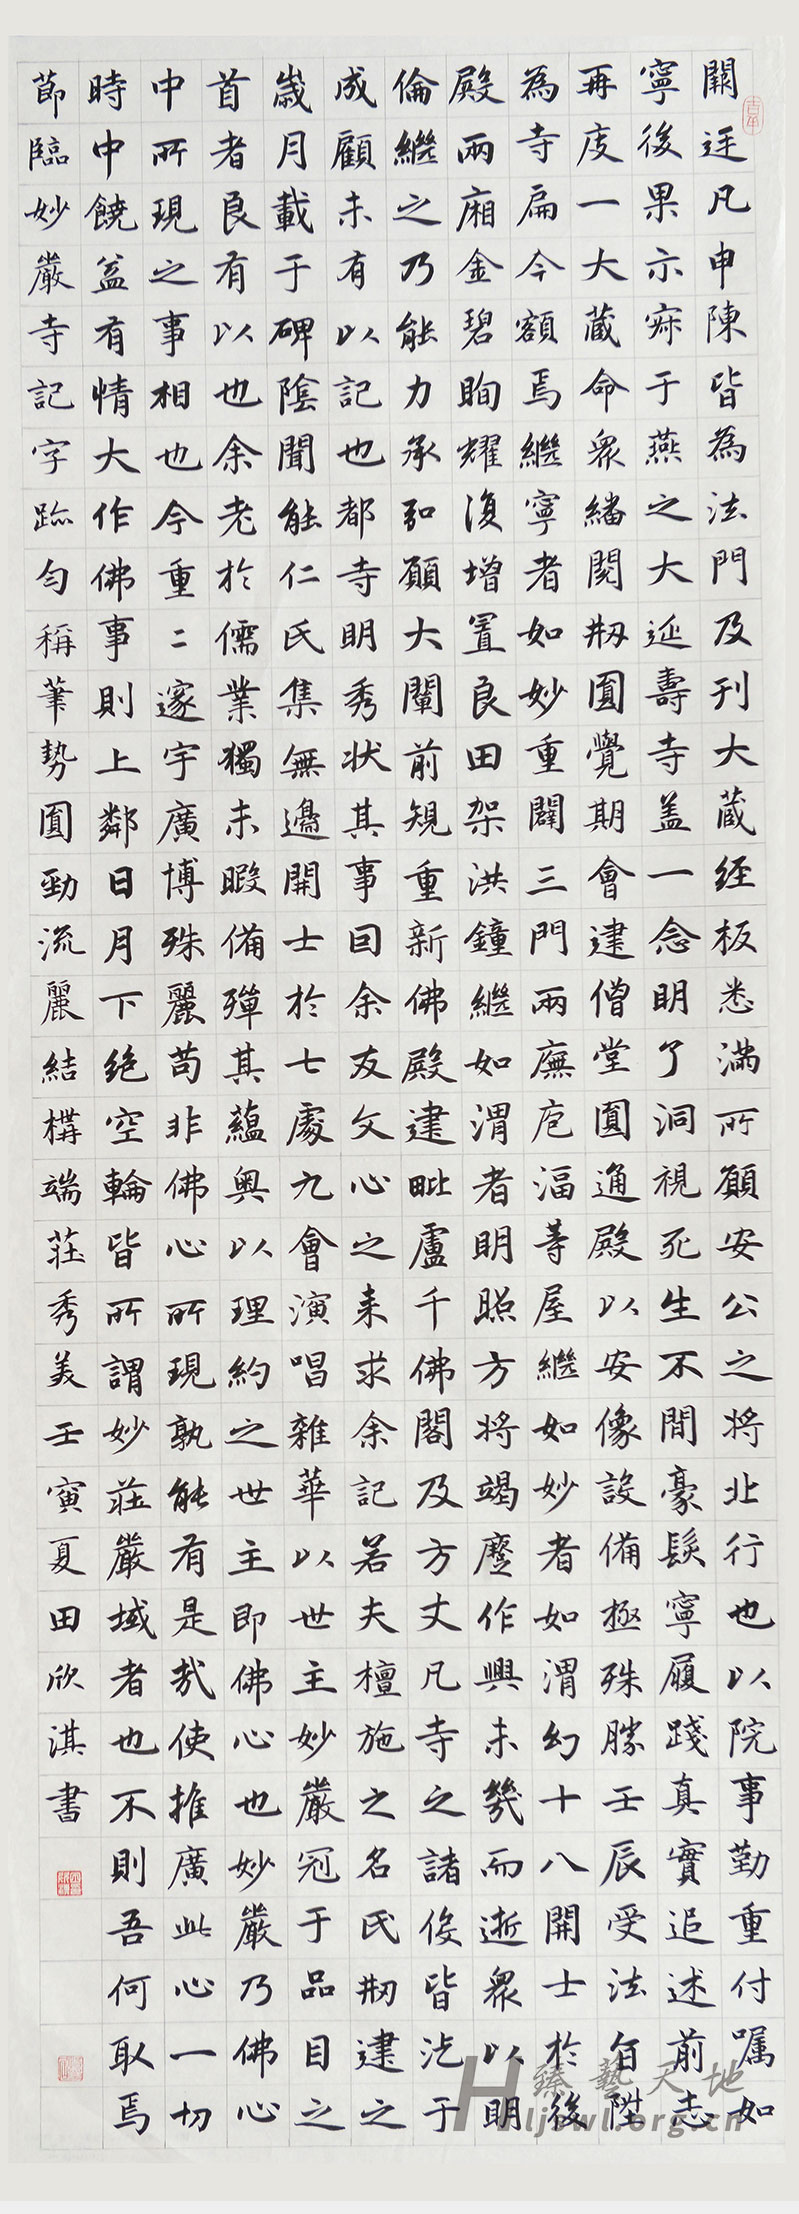 闕迋凡申陳皆為法門及刊大蔵経板悉滿所願安公之将北行也以院事勤重付嘱如
寧後果示寂于燕之大延壽寺盖一念明了洞視死生不間豪髮寧履踐真實追述前志
再度一大蔵命衆繙閱剏圓覺期會建僧堂圓通殿以安像設備極殊勝壬辰受法旨陞
為寺扁今額焉繼寧者如妙重闢三門兩廡庖湢等屋繼如妙者如渭幻十八開士於後
殿兩廂金碧眴耀復增置良田架洪鐘繼如渭者明照方将竭蹷作興未幾而逝衆以明
倫繼之乃能力承弘願大闡前規重新佛殿建毗盧千佛閣及方丈凡寺之諸役皆汔于
成顧未有以記也都寺明秀状其事囙余友文心之来求余記若夫檀施之名氏剏建之
歳月載于碑陰聞能仁氏集無邊開士於七處九會演唱雜華以世主妙嚴冠于品目之
首者良有以也余老於儒業獨未暇備殫其蘊奥以理約之世主即佛心也妙嚴乃佛心
中所現之事相也今重二邃宇廣博殊麗苟非佛心所現孰能有是哉使推廣此心一切
時中饒益有情大作佛事則上鄰日月下絶空輪皆所謂妙莊嚴域者也不則吾何取焉
節臨妙嚴寺記字跡勻稱筆勢圓勁流麗結構端莊秀美壬寅夏田欣淇書
臻藝天地
Hljswl.org.cn